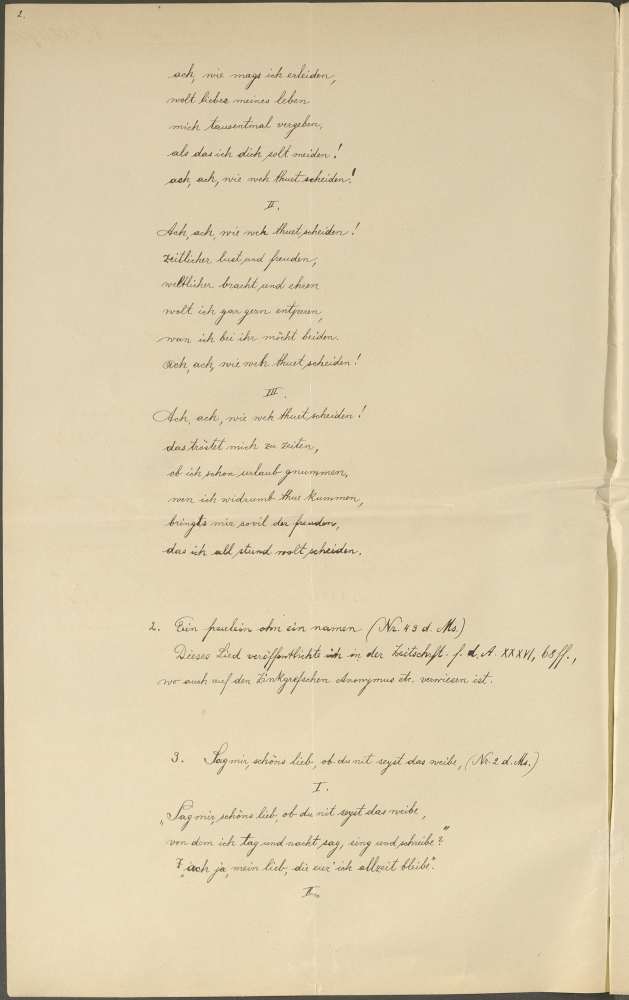 2.
ach, wie mags ich erleiden,
wolt liebez meines leben
mich tausentmal vergeben,
als das ich dich solt meiden!
ach, ach, wie weh thuet scheiden!
II.
Ach, ach, wie weh thuet scheiden!
zeitlicher lust und freuden,
weltlicher bracht und ehren
wolt ich gar gern entperen,
wan ich bei ihr möcht beiden.
Ach, ach, wie weh thuet scheiden!
III.
Ach, ach, wie weh thuet scheiden!
das tröstet mich zu zeiten,
ob ich schon urlaub gnummen,
wen ich widrumb thue kummen,
bringts mir sovil der freuden,
das ich all stund wolt scheiden.
2. Ein freulein ohn ein namen (Nr. 43 d. Ms.)
Dieses Lied veröffentlichte ich in der Zeitschrft. f. d. A. XXXVI, 68ff.,
wo auch auf den Zinkgrefschen Anonymus etc. verwiesen ist.
3. Sag mir, schöns lieb, ob du nit seyst das weibe, (Nr. 2 d. Ms.)
I.
„Sag mir, schöns lieb, ob du nit seyst das weibe,
von dem ich tag und nacht sag, sing und schreibe?"
„ach ja, mein lieb, die eur' ich allzeit bleibe".
II.